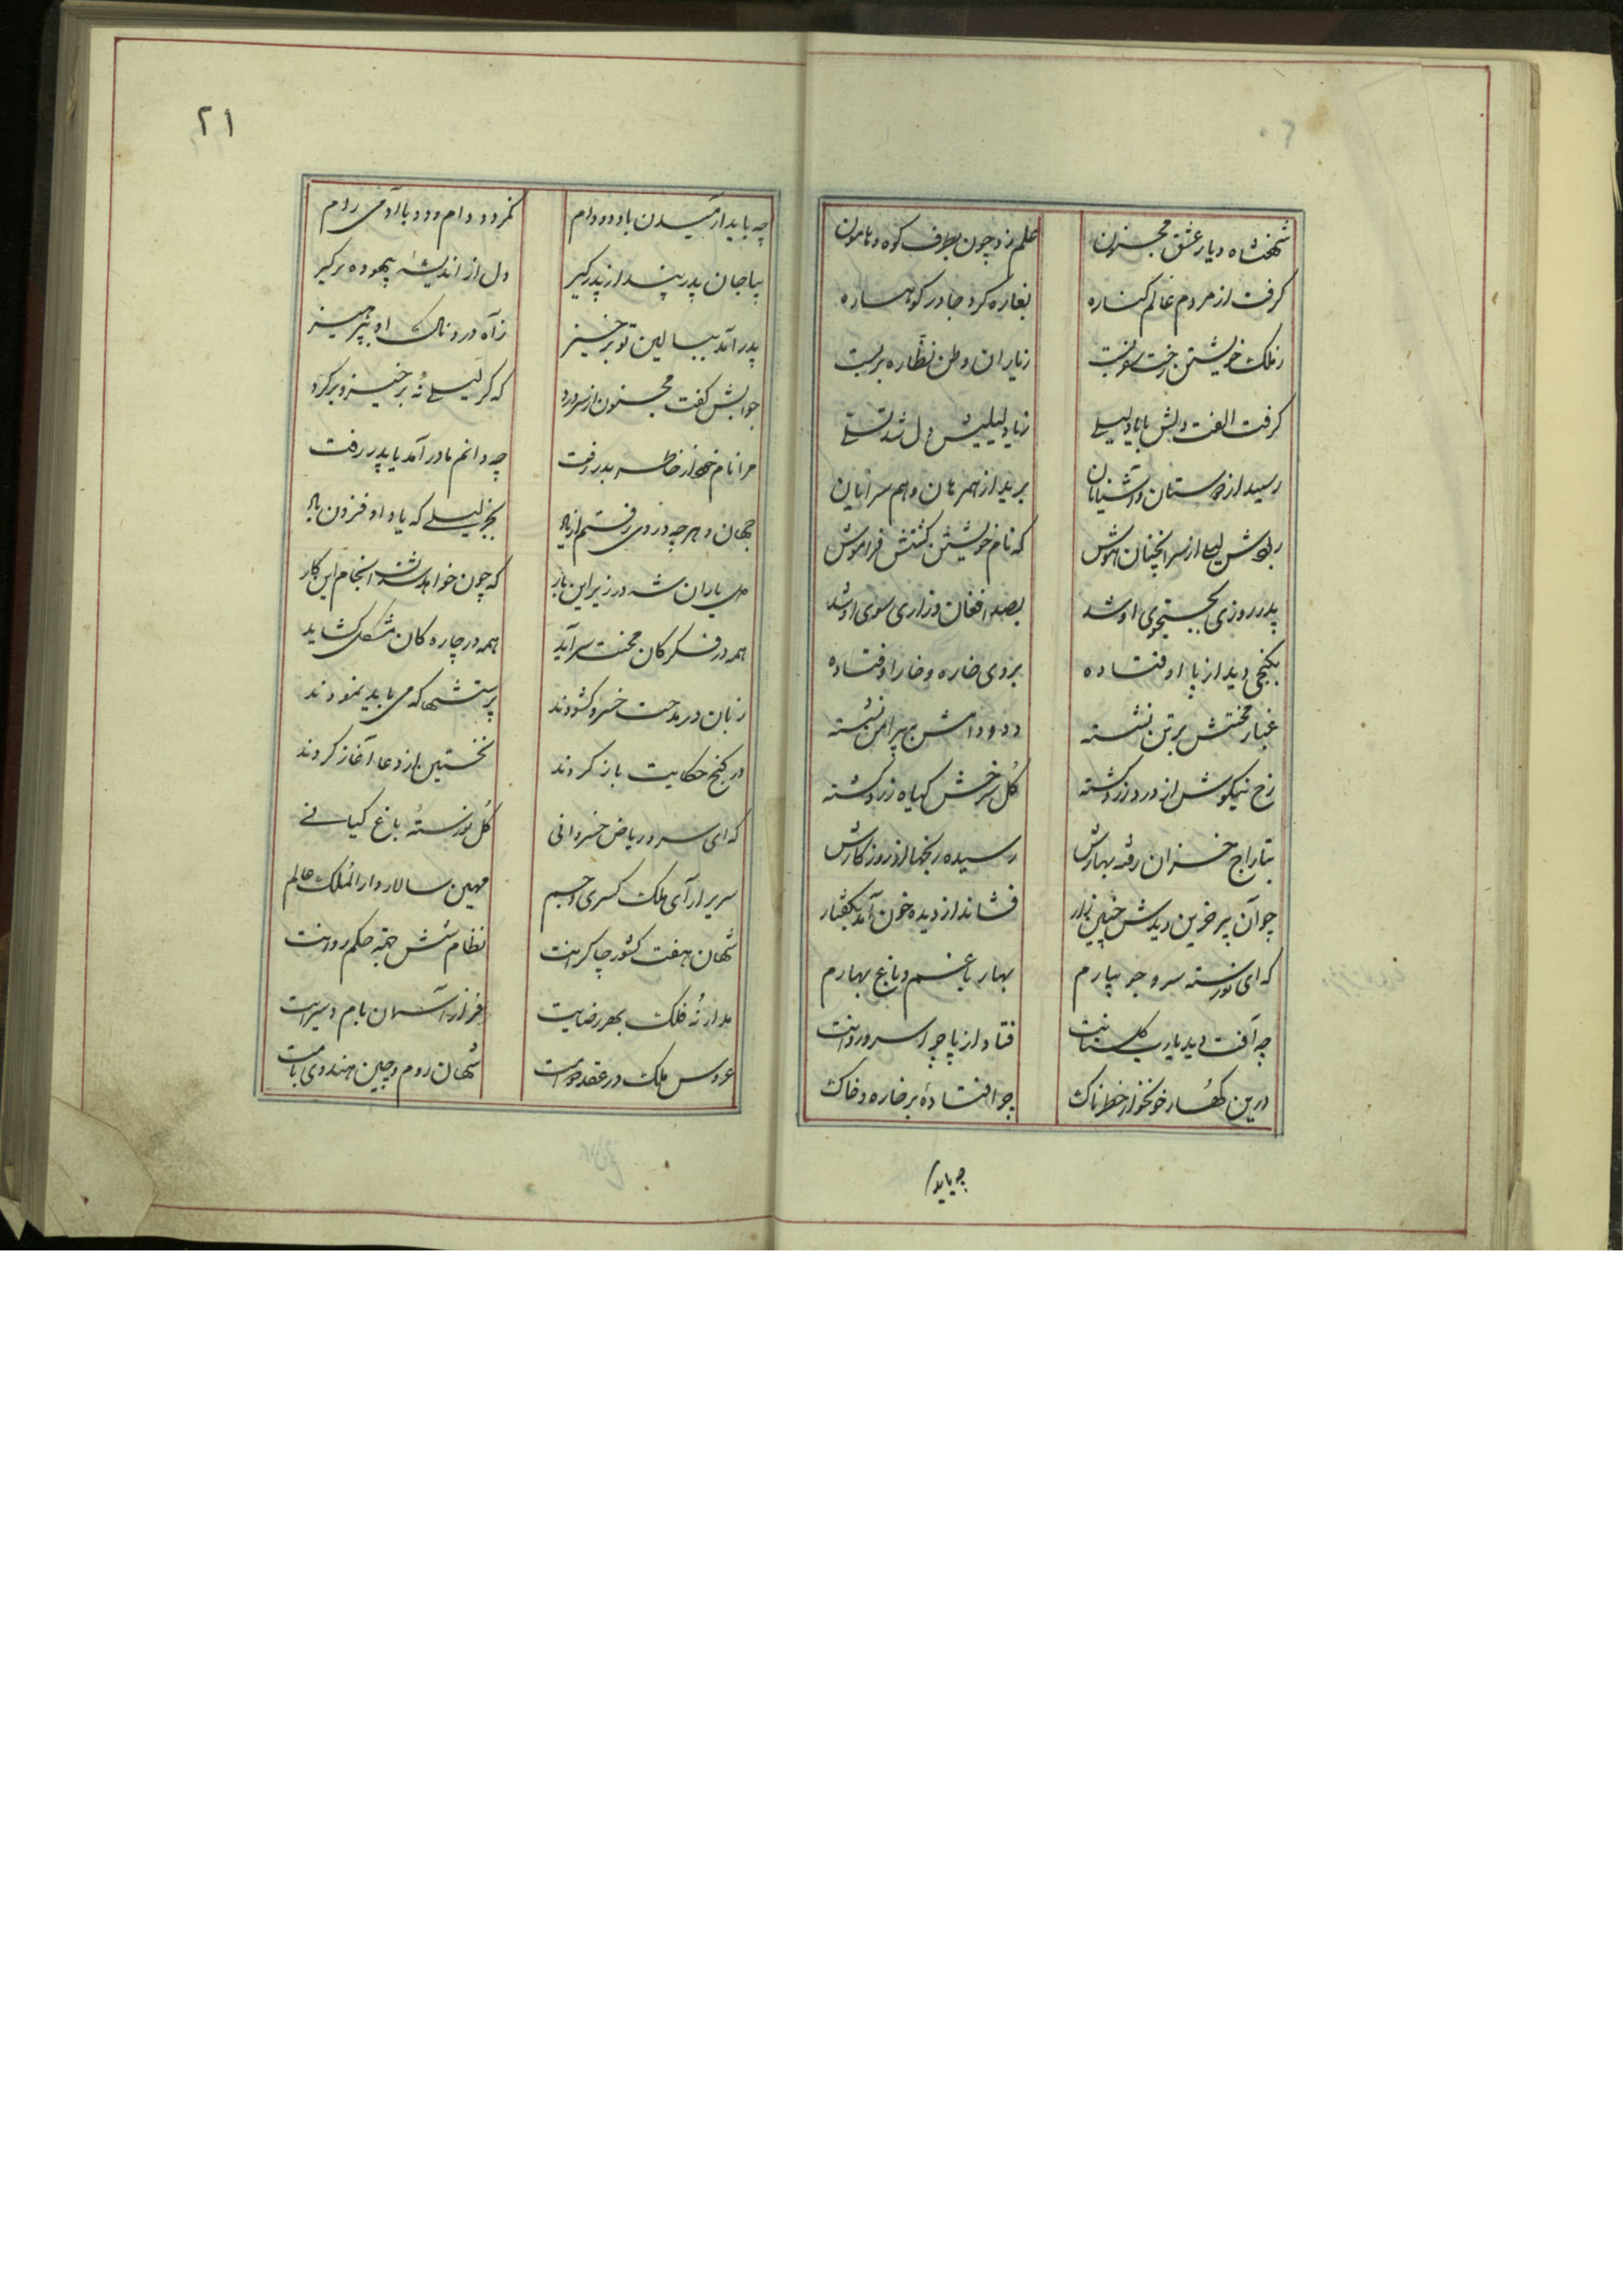 شهنشاه دیار عشق مجنون علم زد چون بطرف کوه و هامون
گرفت از مردم عالم کناره بغاره کرد جا در کوهساره
ز ملک خویشتن رخت سفر بست ز یاران وطن نظاره بربست
گرفت الفت دلش با یاد لیلی ز یاد لیلیش دل شد تسلی
رسید از دوستان و آشنایان برید از همرهان و هم سرایان
ربودش لیلی از سر آنچنان هوش که نام خویشتن گشتش فراموش
پدر روزی بجستجوی او شد بصد افغان و زاری سوی او شد
بکنجی دید از پا اوفتاده بروی خاره و خار اوفتاده
غبار محنتش بر تن نشسته دد و دامش به پیرامن نشسته
رخ نیکوش از درد زرد گشته گل سرخش گیاه زرد گشته
بتاراج خزان رفته بهارش رسیده رنجها از روزگارش
چو آن پیر حزین دیدش چنین زار فشاند از دیده خون آمد بگفتار
که ای نورسته سرو جویبارم بهار باغم و باغ بهارم
چه آفت دید یا رب گلستانت فتاد از پا چرا سرو روانت
درین کهسار خونخوار خطرناک چرا افتادهٔ بر خاره و خاک
چه باید
۲۱
چه باید آرمیدن با دد و دام نگردد دام و دد با آدمی رام
بیا جان پدر پند از پدر گیر دل از اندیشهٔ بیهوده برگیر
پدر آمد ببالین تو برخیز ز آه دردناک او بپرهیز
جوابش گفت مجنون از سر درد که گر لیلی نهٔ برخیز و برگرد
مرا نام خود از خاطر بدر رفت چه دانم مادر آمد یا پدر رفت
جهان و هر چه در وی رفتم از یاد بجز لیلی که یاد او فزون باد
دل یاران شه در زیر این بار که چون خواهد شدن انجام این کار
همه در فکر کان محنت سرآید همه در چاره کان مشکل گشاید
زبان در مدحت خسرو گشودند پرستشها که می باید نمودند
در گنج حکایت باز کردند نخستین از دعا آغاز کردند
که ای سرو ریاض خسروانی گل نورستهٔ باغ کیانی
سریر آرای ملک کسری و جم مهین سالار دار الملک عالم
شهان هفت کشور چاکرانت نظام شش جهة حکم روانت
مدار نه فلک بهر رضایت فراز آسمان بام سرایت
عروس ملک در عقد دوامت شهان روم و چین هندوی بامت